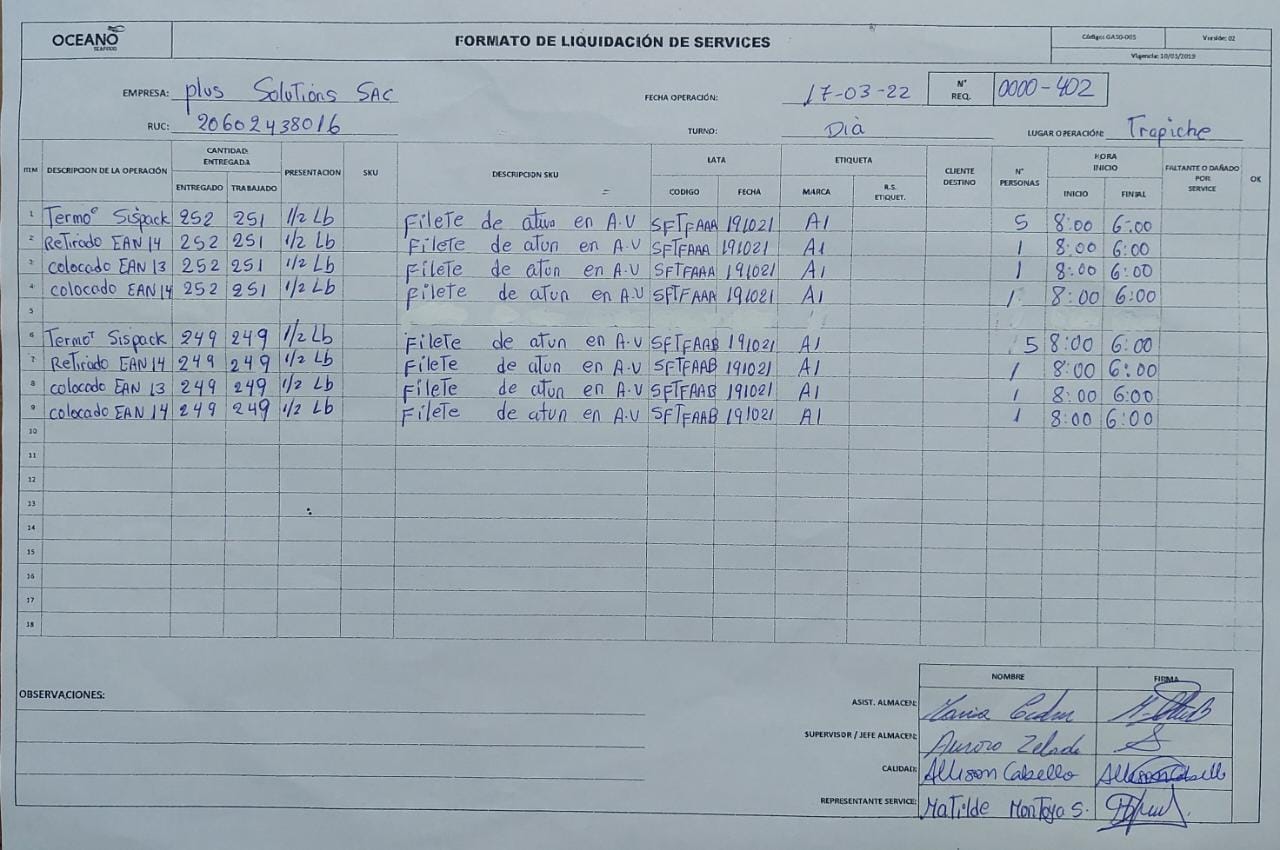 OCEANO
SEAFOOD
FORMATO DE LIQUIDACIÓN DE SERVICES
Código: GASO-005 Versión: 02
Vigencia: 10/01/2019
EMPRESA: plus Solutions SAC FECHA OPERACIÓN: 17-03-22 N° REQ. 0000-402
RUC: 20602438016 TURNO: Dià LUGAR OPERACIÓN: Trapiche
ITEM DESCRIPCION DE LA OPERACIÓN CANTIDAD ENTREGADA PRESENTACION SKU DESCRIPCION SKU LATA ETIQUETA CLIENTE DESTINO N° PERSONAS HORA INICIO FALTANTE O DAÑADO POR SERVICE OK
ENTREGADO TRABAJADO CODIGO FECHA MARCA R.S. ETIQUET. INICIO FINAL
1 Termo Sispack 252 251 1/2 Lb Filete de atun en A.V SFTFAAA 191021 A1 5 8:00 6:00
2 Retirado EAN 14 252 251 1/2 Lb Filete de atun en A.V SFTFAAA 191021 A1 1 8:00 6:00
3 colocado EAN 13 252 251 1/2 Lb Filete de atun en A.V SFTFAAA 191021 A1 1 8:00 6:00
4 colocado EAN 14 252 251 1/2 Lb Filete de atun en A.V SFTFAAA 191021 A1 1 8:00 6:00
5
6 Termo Sispack 249 249 1/2 Lb Filete de atun en A.V SFTFAAB 191021 A1 5 8:00 6:00
7 Retirado EAN 14 249 249 1/2 Lb Filete de atun en A.V SFTFAAB 191021 A1 1 8:00 6:00
8 colocado EAN 13 249 249 1/2 Lb Filete de atun en A.V SFTFAAB 191021 A1 1 8:00 6:00
9 colocado EAN 14 249 249 1/2 Lb Filete de atun en A.V SFTFAAB 191021 A1 1 8:00 6:00
10
11
12
13
14
15
16
17
18
NOMBRE FIRMA
OBSERVACIONES:
ASIST. ALMACEN:
SUPERVISOR / JEFE ALMACEN: Aurora Zelada
CALIDAD: Allison Cabello Allison Cabello
REPRESENTANTE SERVICE: Matilde Montoya S.